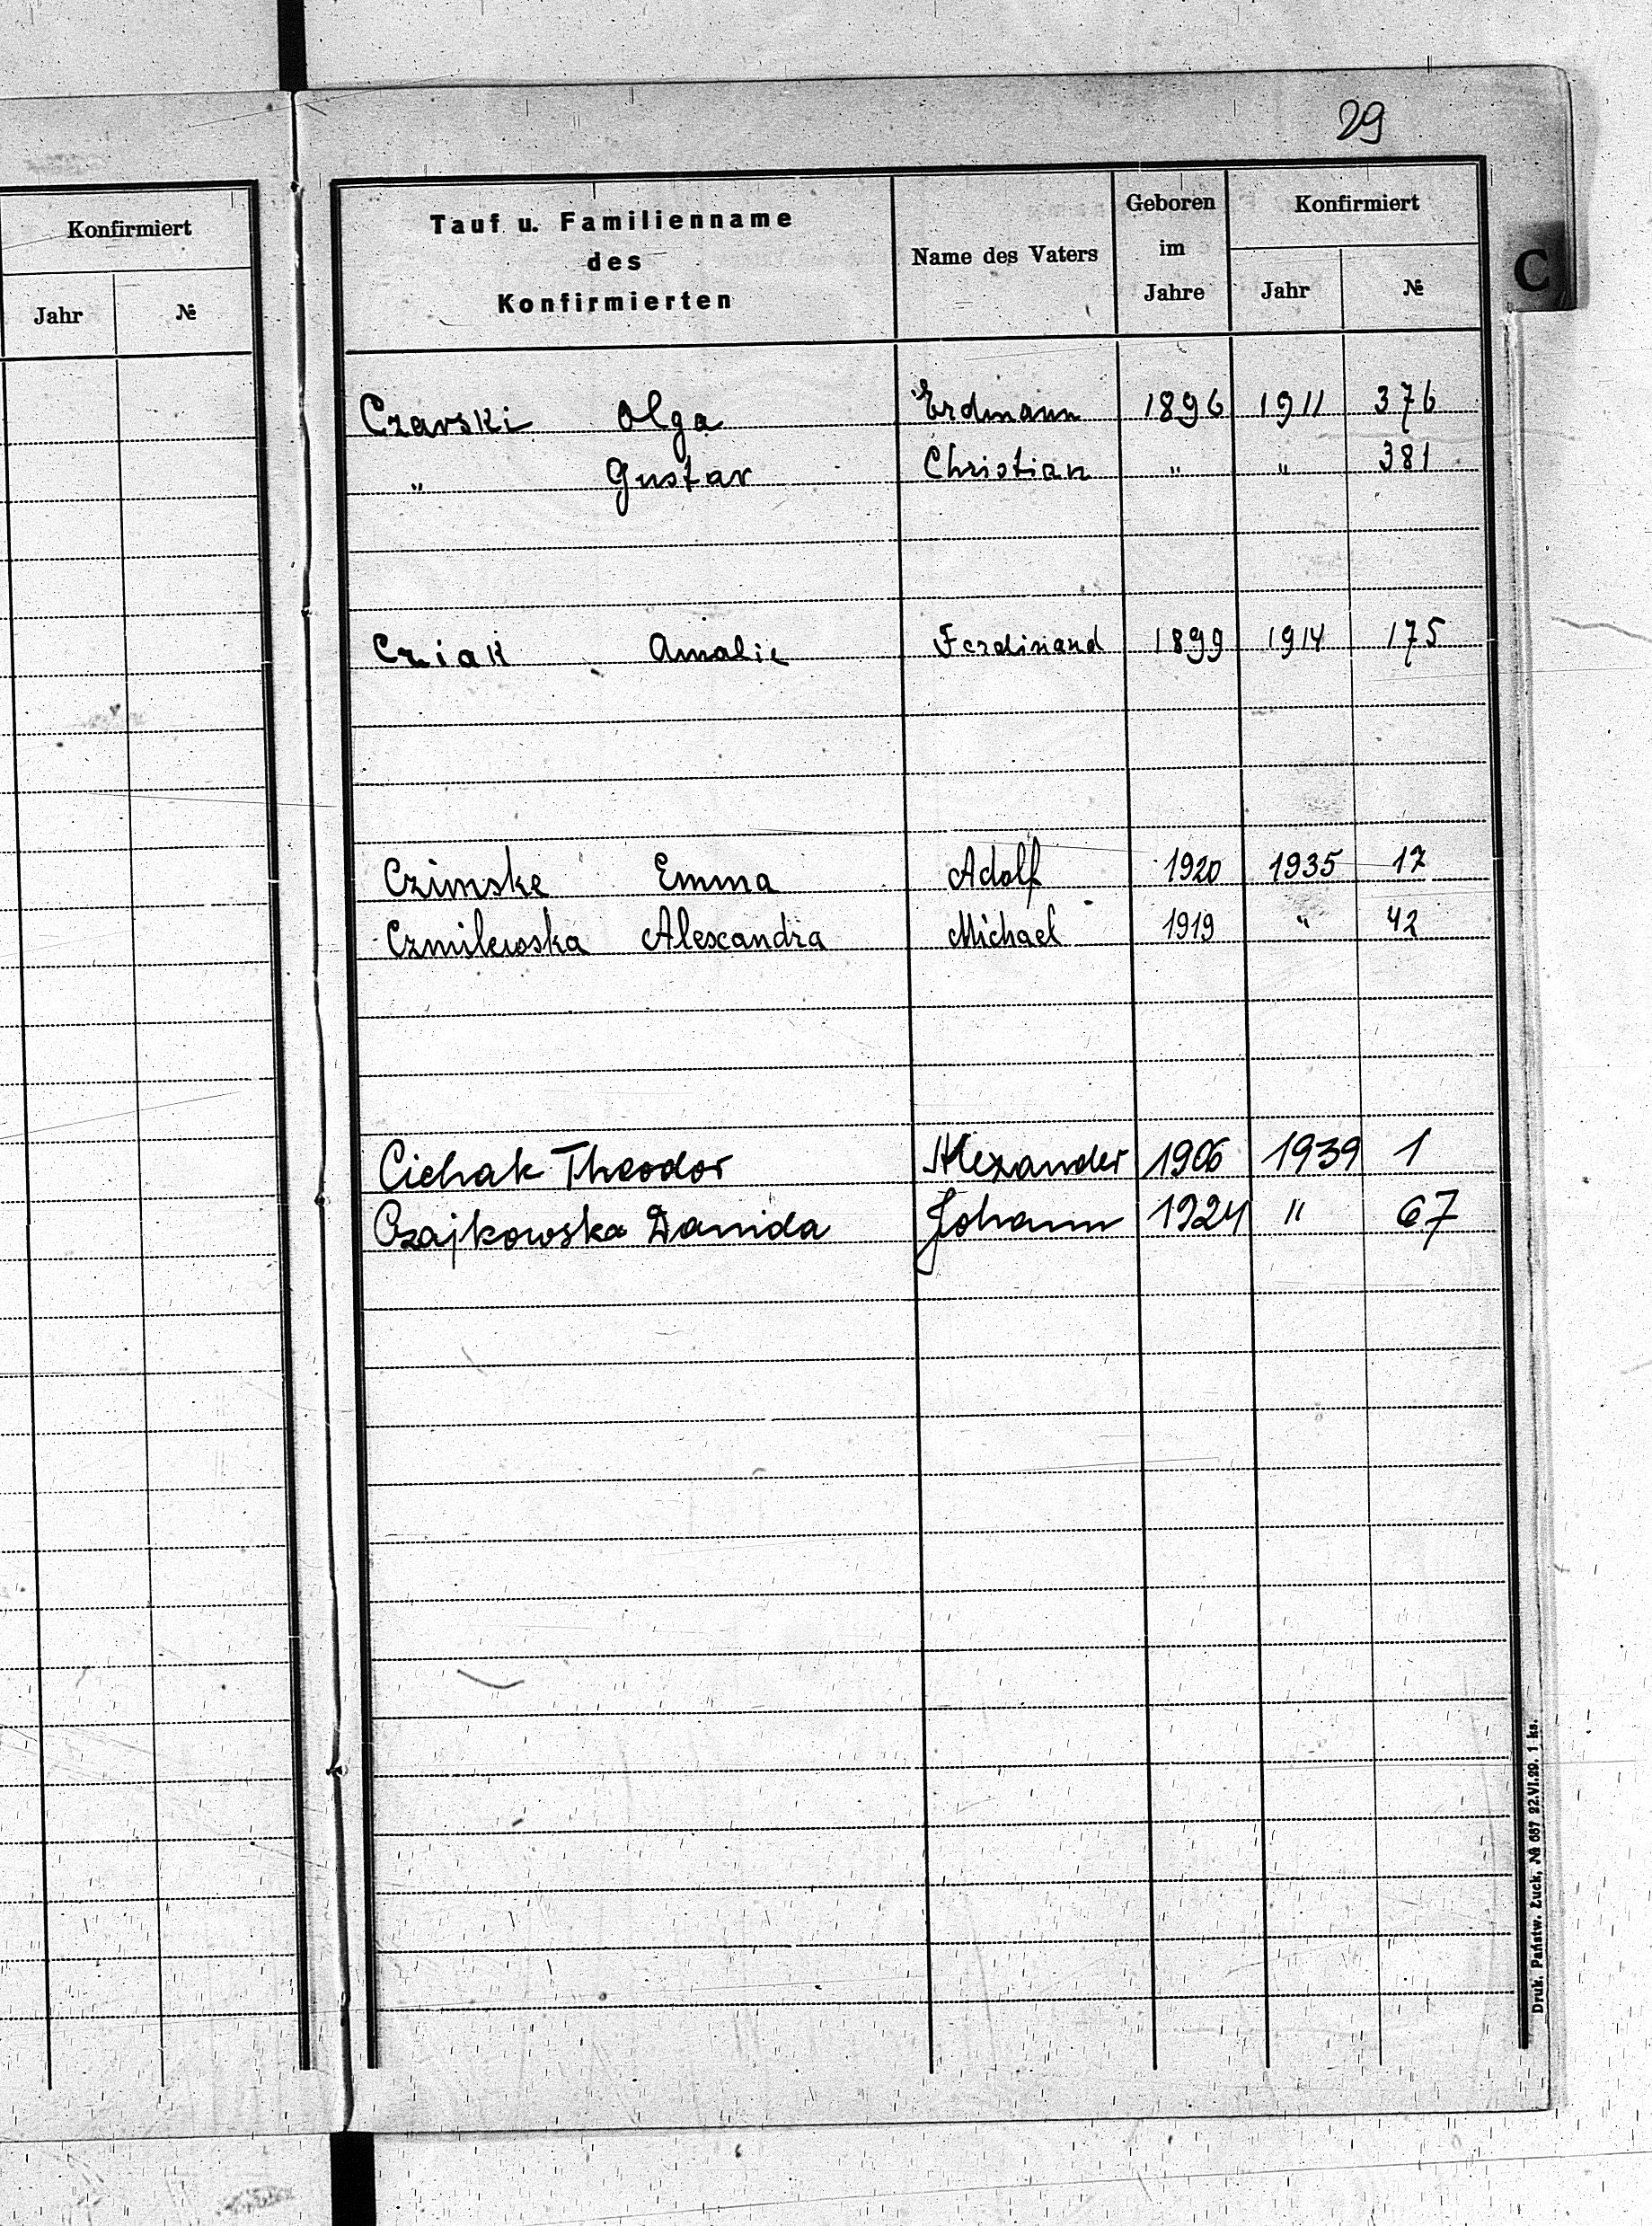 29
Konfirmiert
Jahr №
Tauf u. Familienname
des
Konfirmierten
Name des Vaters
Geboren
im
Jahre
Konfirmiert
Jahr №
C
Czarski Olga Erdmann 1896 1911 376
" Gustav Christian " " 381
Cziak Amalie Ferdinand 1899 1914 175
Czimske Emma Adolf 1920 1935 17
Czmilewska Alexandra Michael 1919 " 42
Cichak Theodor Alexander 1906 1939 1
Czajkowska Danida Johann 1924 " 67
Druk. Państw. Łuck, № 687 22.VI.29. 1 ks.